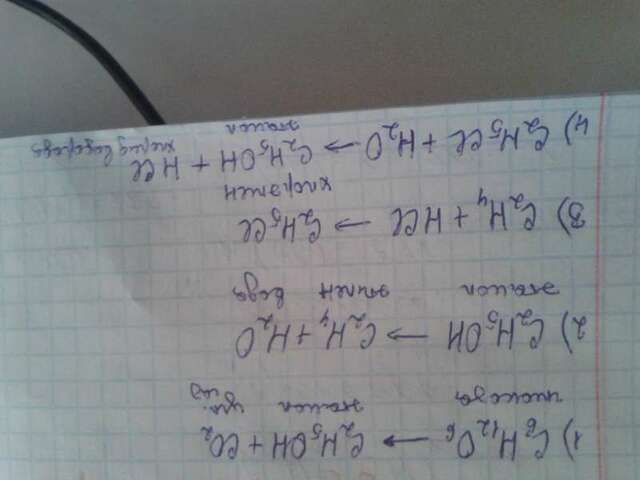 1) C₆H₁₂O₆ → C₂H₅OH + CO₂
глюкоза этанол угл. газ
2) C₂H₅OH → C₂H₄ + H₂O
этанол этилен вода
3) C₂H₄ + HCl → C₂H₅Cl
хлорэтен
4) C₂H₅Cl + H₂O → C₂H₅OH + HCl
этанол хлорид водорода